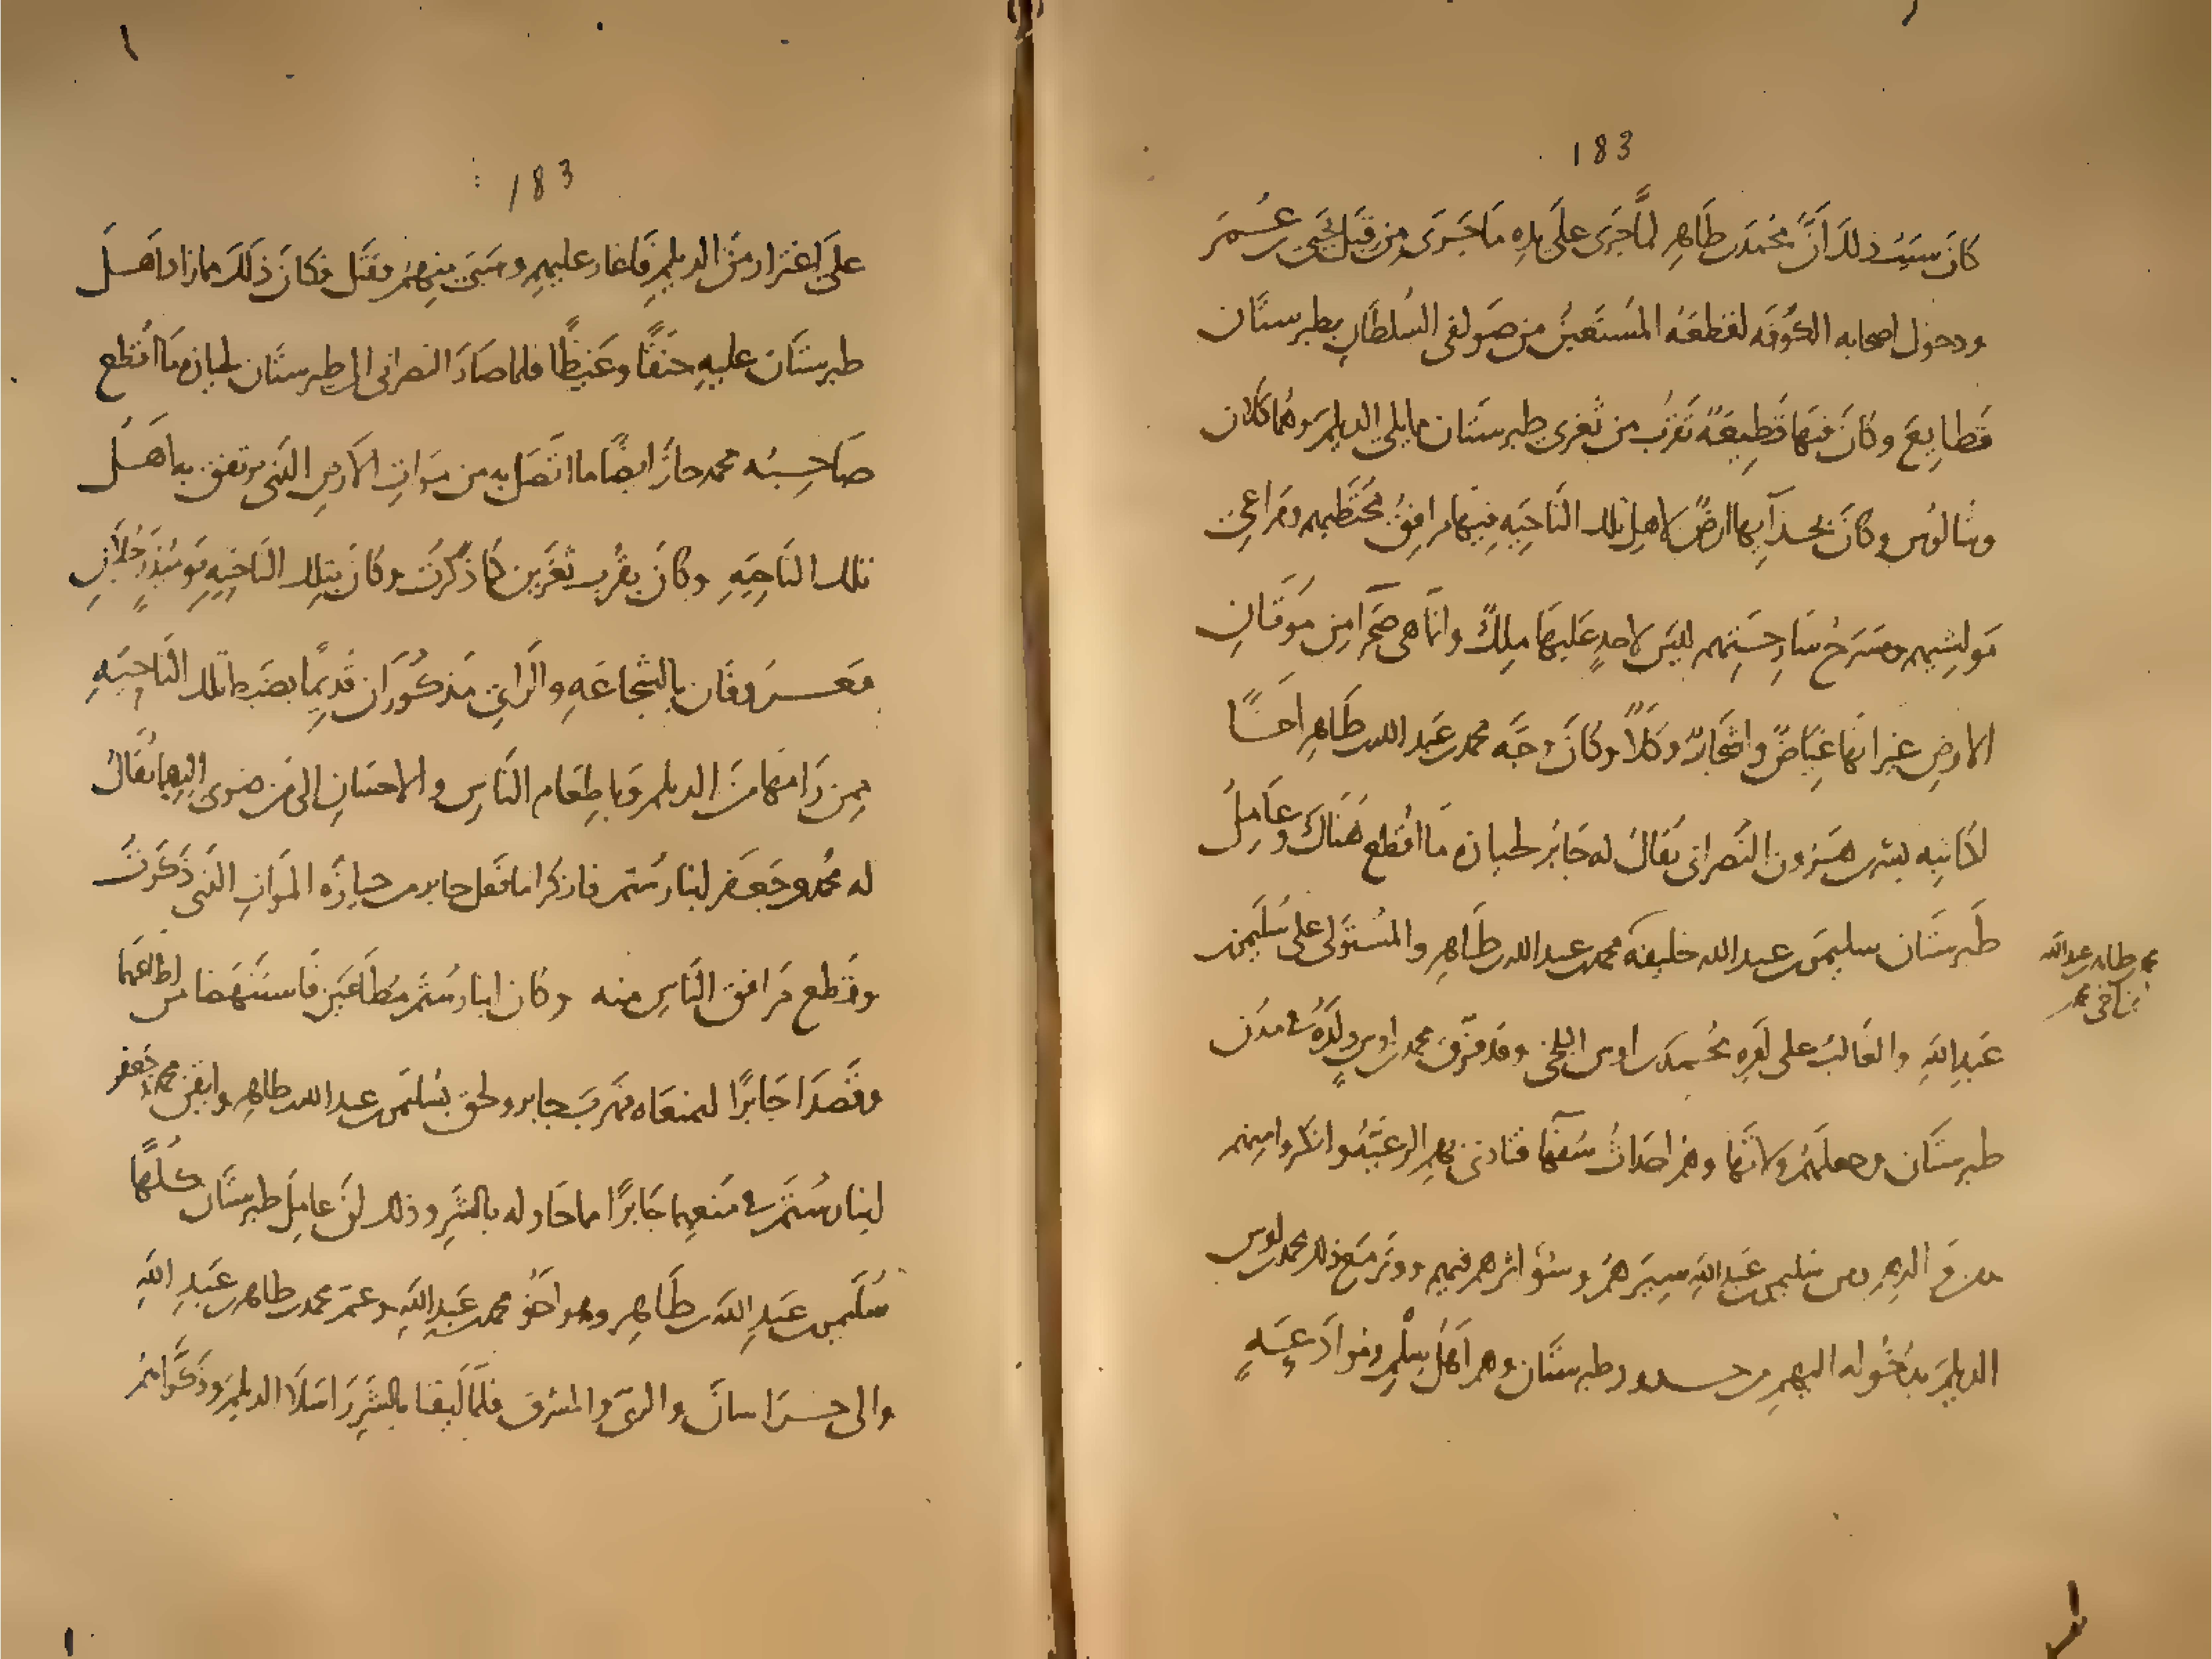 183
كان سبب ذلك أنّ محمد بن طاهر لمّا جرى على يده ما جرى من قتل يحيى بن عمر
ودخول اصحابه الكوفه اقطعه المستعين من صوافى السلطان بطبرستان
قطايع وكان فيها قطيعة تقرب من ثغرى طبرستان مما يلي الديلم وهما كلار
وسالوس وكان بحذآيها ارض لاهل تلك الناحيه فيها مرافق محتطبهم ومراعي
مواشيهم ومسرح سارحتهم ليس لاحد عليها ملك وانما هي صحرآ من موتان
الارض غير انها غياض واشجار وكلأ وكان وجه محمد بن عبد الله بن طاهر اخا
لكاتبه بشر بن هرون النصرانى يقال له جابر لحيازه ما اقطع هناك وعامل
طبرستان سليمن بن عبد الله خليفه محمد بن عبد الله بن طاهر والمستولى على سليمن بن
محمد بن طاهر بن عبد الله
ابن اخى محمد
عبد الله والغالب على امره محمد بن اوس البلخى وقد فرق محمد بن اوس ولده في مدن
طبرستان وجعلهم ولاتها وهم احداث سفهآ فتاذى بهم الرعيه وانكروا منهم
ومن سليمن بن عبد الله سيرهم وسوٓ اثرهم فيهم ووتر مع ذلك محمد بن اوس
الديلم بدخوله اليهم من حدود طبرستان وهم اهل سلم وموادعه
183
على اغترار من الديلم فاغار عليهم وسبى منهم وقتل فكان ذلك مما زاد اهل
طبرستان عليه حنقا وغيظا فلما صار النصرانى الى طبرستان لحيازه ما اقطع
صاحبه محمد حاز ايضا ما اتصل به من موات الارض التى يرتفق بها اهل
تلك الناحيه وكان يقرب ثغرين كما ذكرت وكان بتلك الناحيه يومئذ رجلان
معروفان بالشجاعه والراي مذكوران قديما بضبط تلك الناحيه
ممن رامها من الديلم وباطعام الناس والاحسان الى من ضوى اليهما يقال
له محمد وجعفر ابنا رستم فانكرا ما فعل جابر من حيازه الموات التى ذكرت
وقطع مرافق الناس منه وكان ابنا رستم مطاعين فاستنهضا من اطاعهما
وقصدا جابرا ليمنعاه فهرب جابر ولحق بسليمن بن عبد الله بن طاهر وايقن محمد وجعفر
ابنا رستم في منعهما جابرا مما حاوله بالشر وذلك ان عامل طبرستان كلها
سليمن بن عبد الله بن طاهر وهو اخو محمد بن عبد الله وعم محمد بن طاهر بن عبد الله
والى خراسان والرى والمشرق فلما ايقنا بالشر راسلا الديلم وذكروا لهم